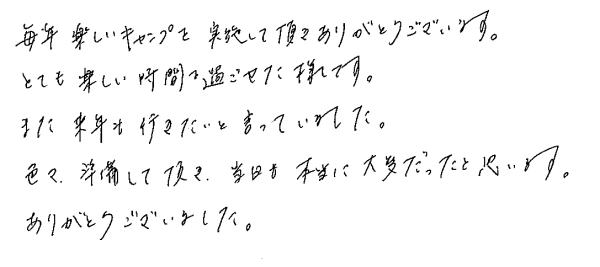 毎年 楽しいキャンプを 実施して頂きありがとうございます。
とても 楽しい 時間を過ごせた 様です。
また 来年も 行きたいと 言っていました。
色々、準備して 頂き、当日も 本当に 大変だったと 思います。
ありがとうございました。